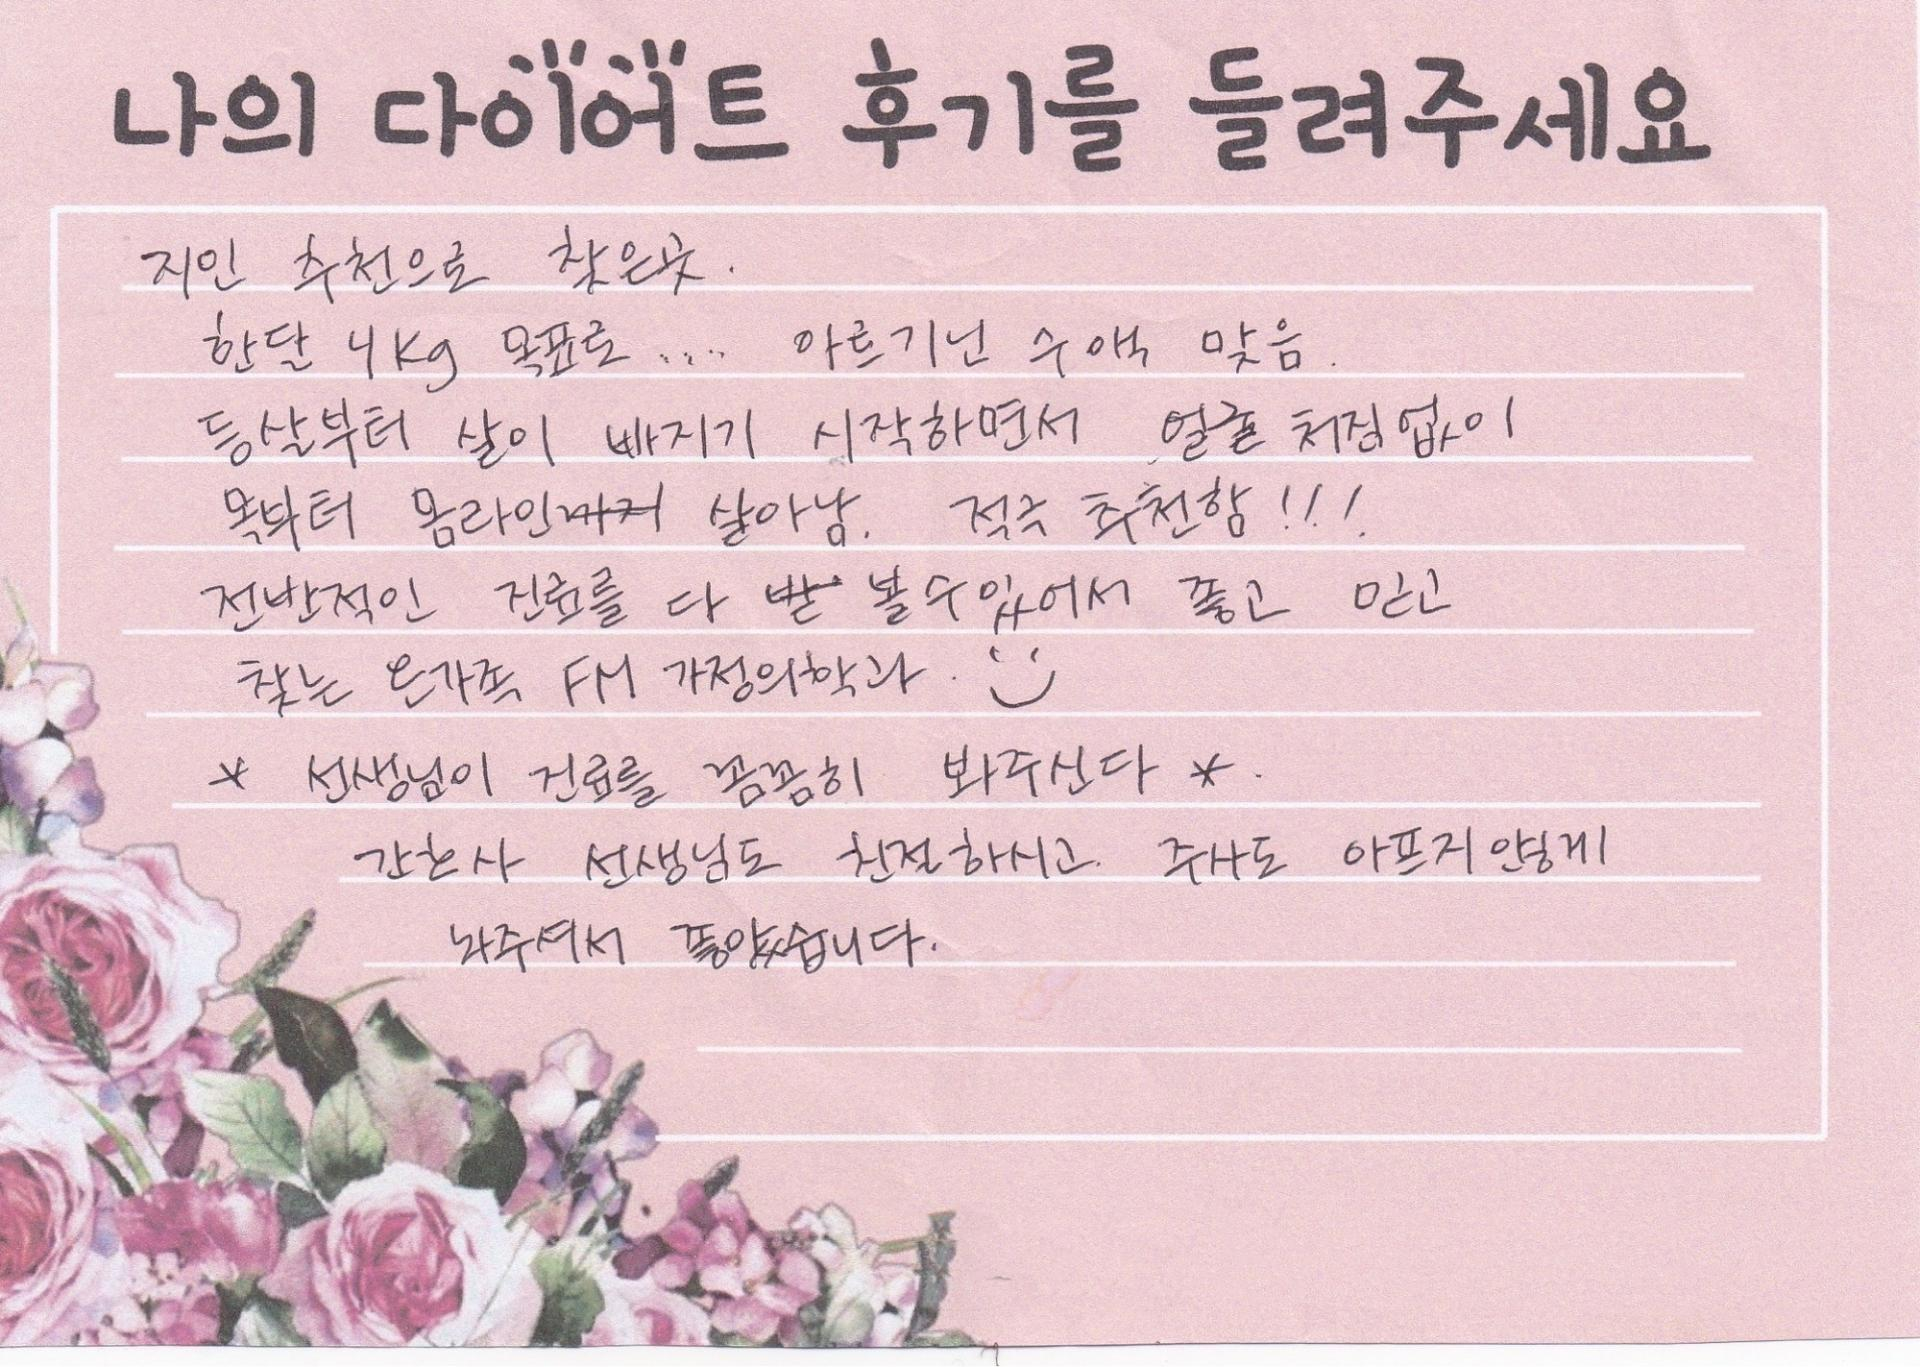 나의 다이어트 후기를 들려주세요
지인 추천으로 찾은곳.
한달 4Kg 목표로 .... 아르기닌 수액 맞음.
등살부터 살이 빠지기 시작하면서 얼굴 처짐없이
목부터 몸라인 살아남. 적극 추천함!!!
전반적인 진료를 다 받 볼수있어서 좋고 믿고
찾는 온가족 FM 가정의학과. :)
* 선생님이 진료를 꼼꼼히 봐주신다 *.
간호사 선생님도 친절하시고. 주사도 아프지않게
놔주셔서 좋았습니다.